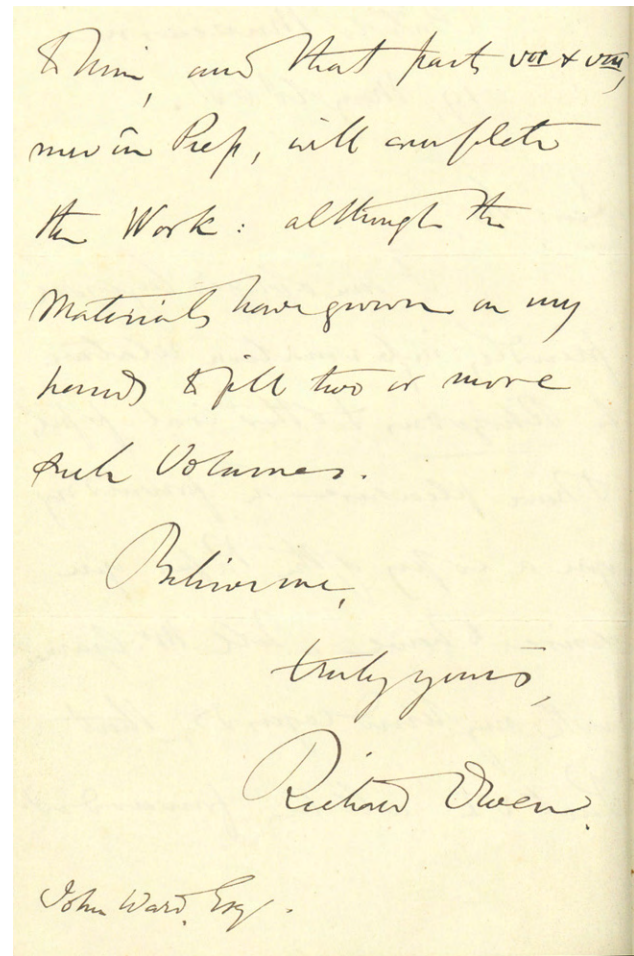 to him, and that parts VII & VIII,
now in Prep, will complete
the Work: although the
Materials have grown on my
hands to fill two or more
such Volumes.
Believe me,
truly yours,
Richard Owen.
John Ward, Esq.